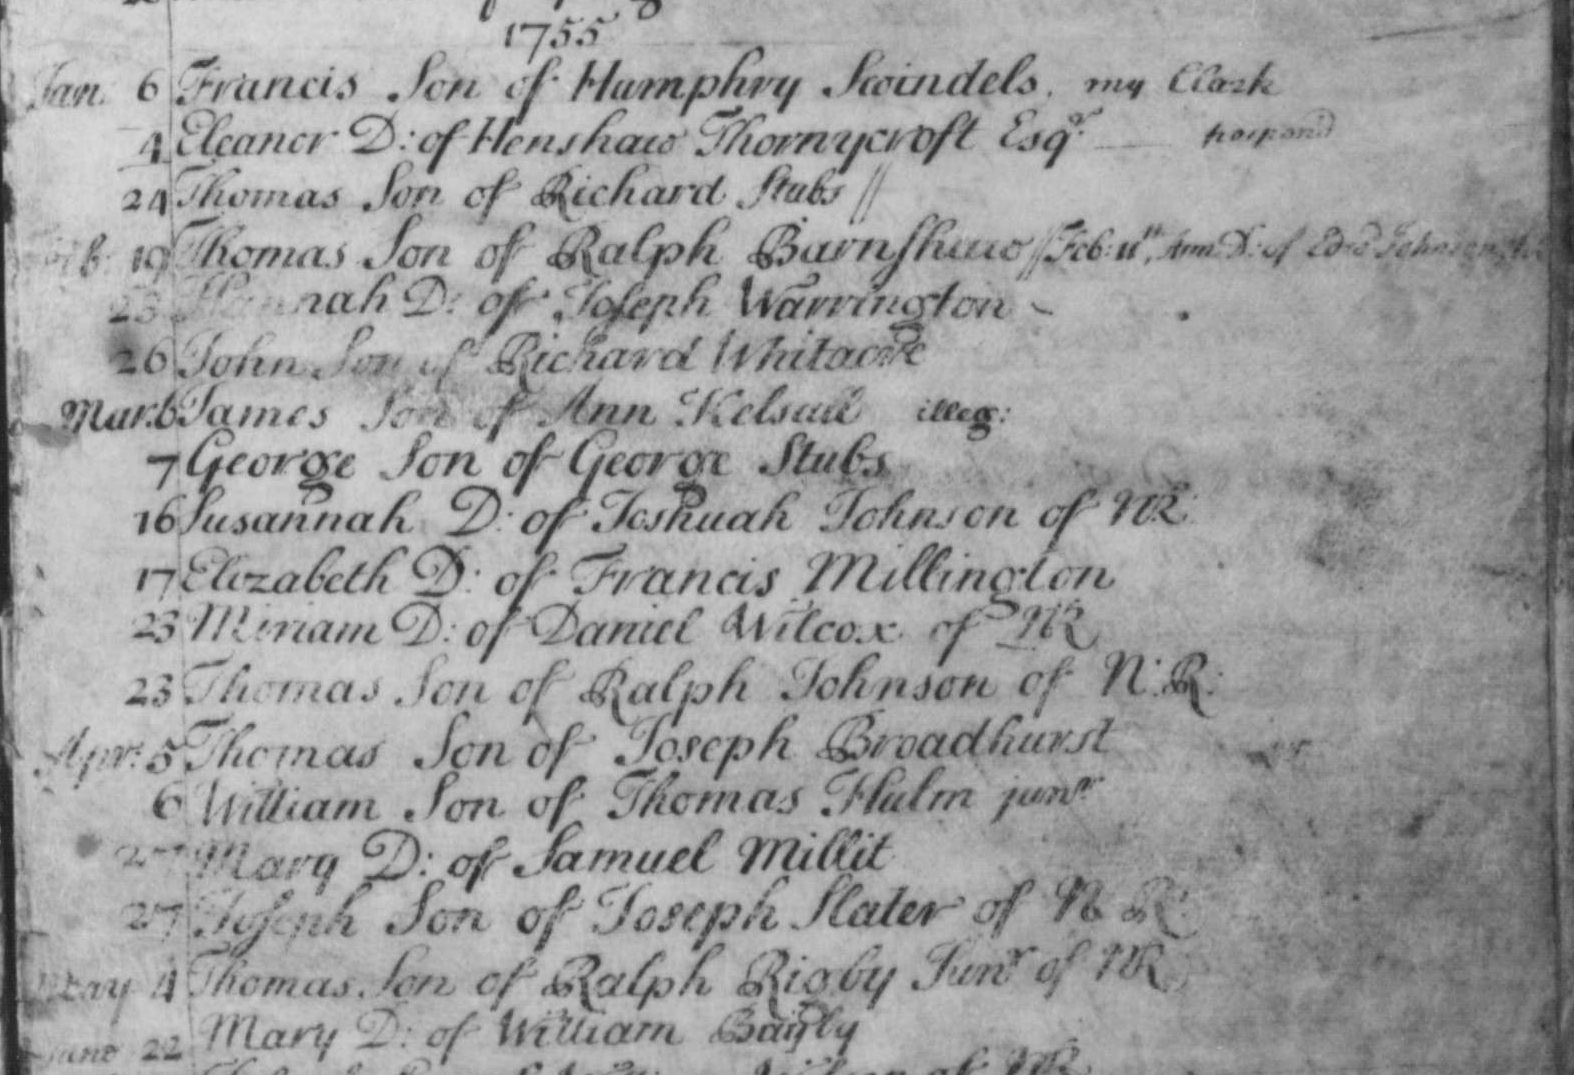 1755
Jan. 6 Francis Son of Humphry Swindels. my Clark
4 Eleanor D: of Henshaw Thornycroft Esqr.
24 Thomas Son of Richard Stubs //
Feb: 19 Thomas Son of Ralph Barnshaw // Feb: 11th, Ann D: of Edwd Johnson
23 Hannah D: of Joseph Warrington
26 John Son of Richard Whitacre
Mar. 6 James Son of Ann Kelsall illeg:
7 George Son of George Stubs
16 Susannah D: of Joshuah Johnson of NR:
17 Elizabeth D: of Francis Millington
23 Miriam D: of Daniel Wilcox of NR
23 Thomas Son of Ralph Johnson of N:R:
Apr: 5 Thomas Son of Joseph Broadhurst
6 William Son of Thomas Hulm junr
27 Mary D: of Samuel Millit
27 Joseph Son of Joseph Slater of N R:
May 4 Thomas Son of Ralph Rigby Junr of NR
June 22 Mary D: of William Bayly